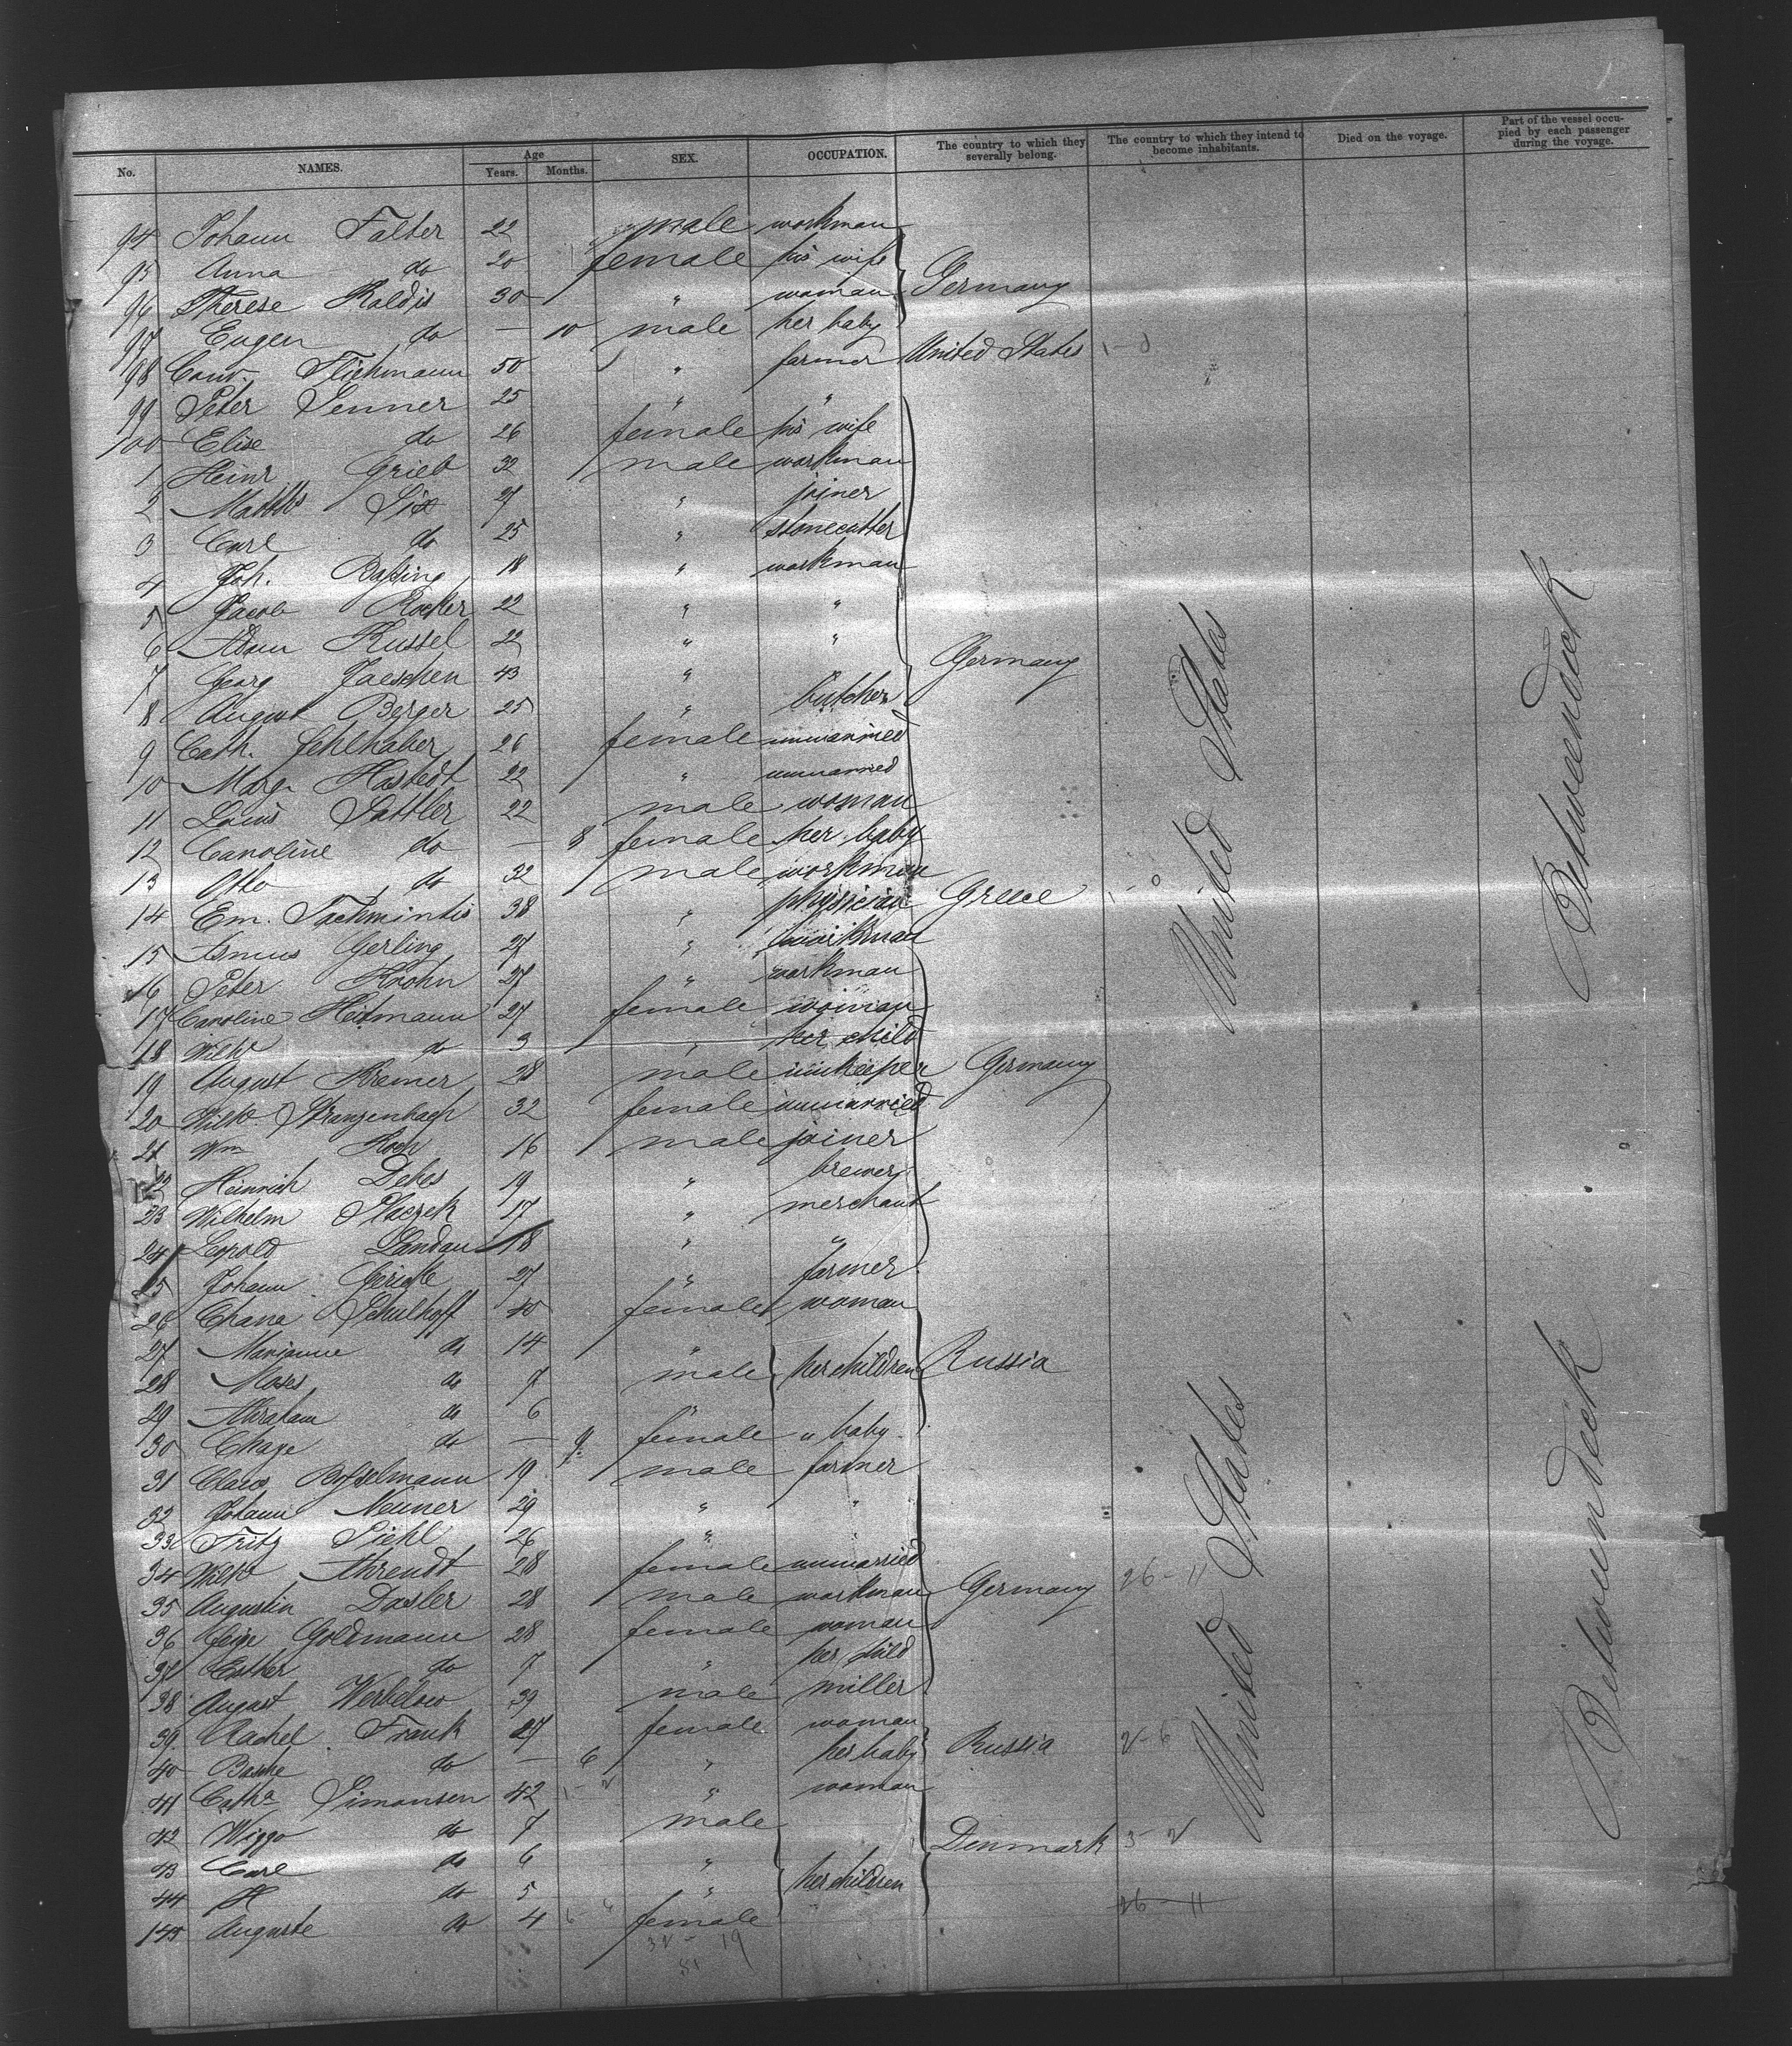 No. NAMES. Age Years. Months. SEX. OCCUPATION. The country to which they severally belong. The country to which they intend to become inhabitants. Died on the voyage. Part of the vessel occupied by each passenger during the voyage.
94 Johann Falter 22 male workman
95 Anna do 20 female his wife
96 Therese Raldis 30 " woman Germany
97 Eugen do — 10 male her baby
98 Conr. Flichmann 50 " farmer United States 1-0
99 Peter Senner 25 " "
100 Elise do 26 female his wife
1 Heinr Grieb 32 male workman
2 Matths Six 27 " joiner
3 Carl do 25 " stonecutter
4 Joh. Baßing 18 " workman
5 Jacob Rocker 22 " "
6 Adam Kussel 22 " "
7 Georg Jaeschen 43 " Germany
8 August Berger 25 " butcher
9 Cath. Fehlhaber 26 female unmarried
10 Marg. Hastedt 22 " unmarried
11 Louis Sattler 22 male woman
12 Caroline do — 8 female her baby
13 Otto do 32 male workman
14 Em. Tachmintis 38 " physician Greece 1-0
15 Asmus Gerling 27 " workman
16 Peter Krohn 27 " workman
17 Caroline Heitmann 27 female woman
18 Wilhe do 3 " her child
19 August Kremer 28 male innkeeper Germany
20 Wilhe. Stranzenbach 32 female unmarried
21 Wm Koch 16 male joiner
22 Heinrich Debes 19 " brewer
23 Wilhelm Placzek 17 " merchant
24 Leopold Landau 18 " "
25 Johann Gericke 27 " farmer
26 Chana Schulhoff 40 female woman
27 Marianne do 14 "
28 Moses do 7 male her children Russia
29 Abraham do 6 "
30 Chage do — 9 female " baby
31 Claus Boßelmann 19 male farmer
32 Johann Neuner 29 " "
33 Fritz Piehl 26 " "
34 Wilhe Ahrendt 28 female unmarried
35 Augustin Dasler 28 male workman Germany 26-11
36 Feige Goldmann 28 female woman
37 Esther do 7 " her child
38 August Werbelow 39 male miller
39 Rachel Frank 27 female woman
40 Basche do — 6 " her baby Russia 2-6
41 Catha Simonsen 42 " woman
42 Wiggo do 7 male Denmark 3-2
43 Carl do 6 "
44 H do 5 " her children
145 Auguste do 4 female 26-11
32-19
51
United States
Betweendeck
United States
Betweendeck